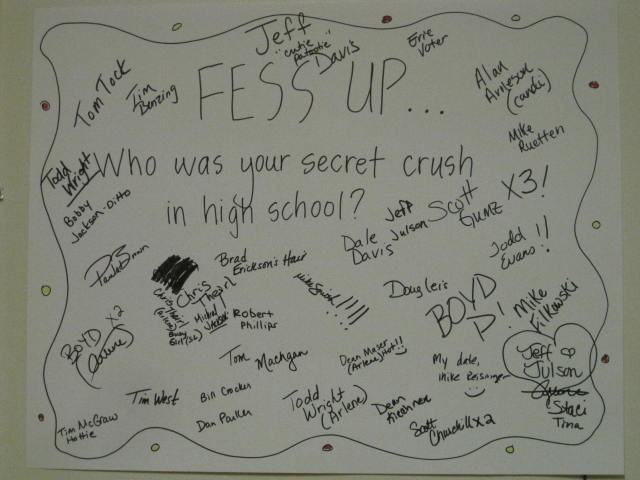 Jeff
"cutie
Patootie"
Davis
Ernie
Voter
FESS UP...
Tom Tock
Tim
Benzing
Alan
(candi)
Mike
Ruetten
Todd
Wright
Who was your secret crush
in high school?
Bobby
Jackson-Ditto
Jeff
Julson
Scott
Gumz X3!
Dale
Davis
Todd !!
Evans!!
Brad
Erickson's Hair
Chris
Mike Smith!!!!
Doug Leis
BOYD
P!
Mike
Filkowski
BOYD X2
Michael
Robert
Phillips
Tom Machgan
Dean Maser
(Arlene) Hot!!
My date,
Mike Reisinger
Jeff
Julson
Staci
Tina
Tim West
Bill Crocker
Dan Parker
Todd
Wright
(Arlene)
Dean
Kirchner
Scott
Churchill X2
Tim McGraw
Hottie